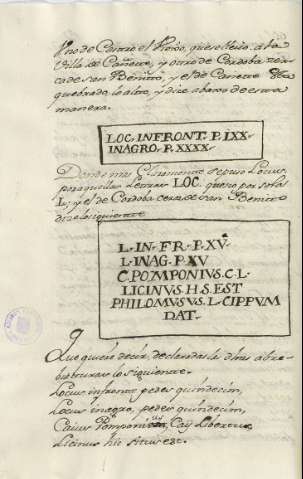 Uno de Castro el Rexo, que se llevó a la
Villa de Cañete, y otro de Cordoba cerca
ca de san Benitto, y el de Cañete esta
quebrado lo alto, y dice abaxo de esta
manera.
LOC. INFRONT. P. IXX
INAGRO. P. XXXX
Donde mas claramente se puso Locus,
por aquellas letras LOC. que no por sola
L, y el de Cordoba cerca de san Benito
dize lo siguiente
L. IN. FR. P. XV
L. INAG. P. XV
C. POMPONIVS. C. L
LICINVS. H. S. EST
PHILOMVSVS. L. CIPPVM
DAT.
Que quiere decir, declaradas las dhas abre-
biaturas lo siguiente.
Locus in fronte pedes quindecim,
Locus in agro, pedes quindecim,
Caius Pomponius, Caij Libertus
Licinus hic situs est.